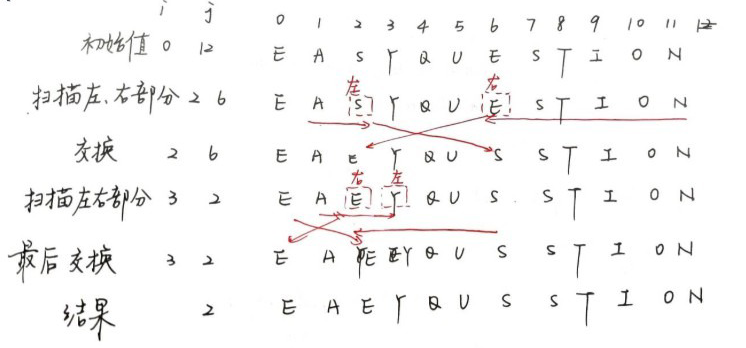 i j 0 1 2 3 4 5 6 7 8 9 10 11 12
初始值 0 12 E A S Y Q U E S T I O N
左 右
扫描左、右部分 2 6 E A S Y Q U E S T I O N
交换 2 6 E A E Y Q U S S T I O N
右 左
扫描左右部分 3 2 E A E Y Q U S S T I O N
最后交换 3 2 E A E Y Q U S S T I O N
结果 2 E A E Y Q U S S T I O N